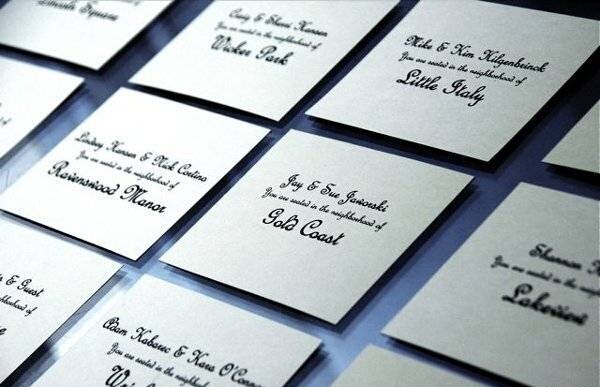 Lincoln Square
Craig & Sherri Hansen
You are seated in the neighborhood of
Wicker Park
Mike & Kim Kilgenbrinck
You are seated in the neighborhood of
Little Italy
Lindsey Hansen & Nick Cortino
You are seated in the neighborhood of
Ravenswood Manor
Jay & Sue Jaworski
You are seated in the neighborhood of
Gold Coast
Shannon
You are seated in the neigh
Lakeview
& Guest
in the neighborhood of
Adam Kabarec & Kara O'Conn
You are seated in the neighborhood of